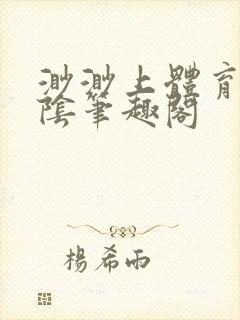 渺渺上體育
陰筆趣閣
楊希雨